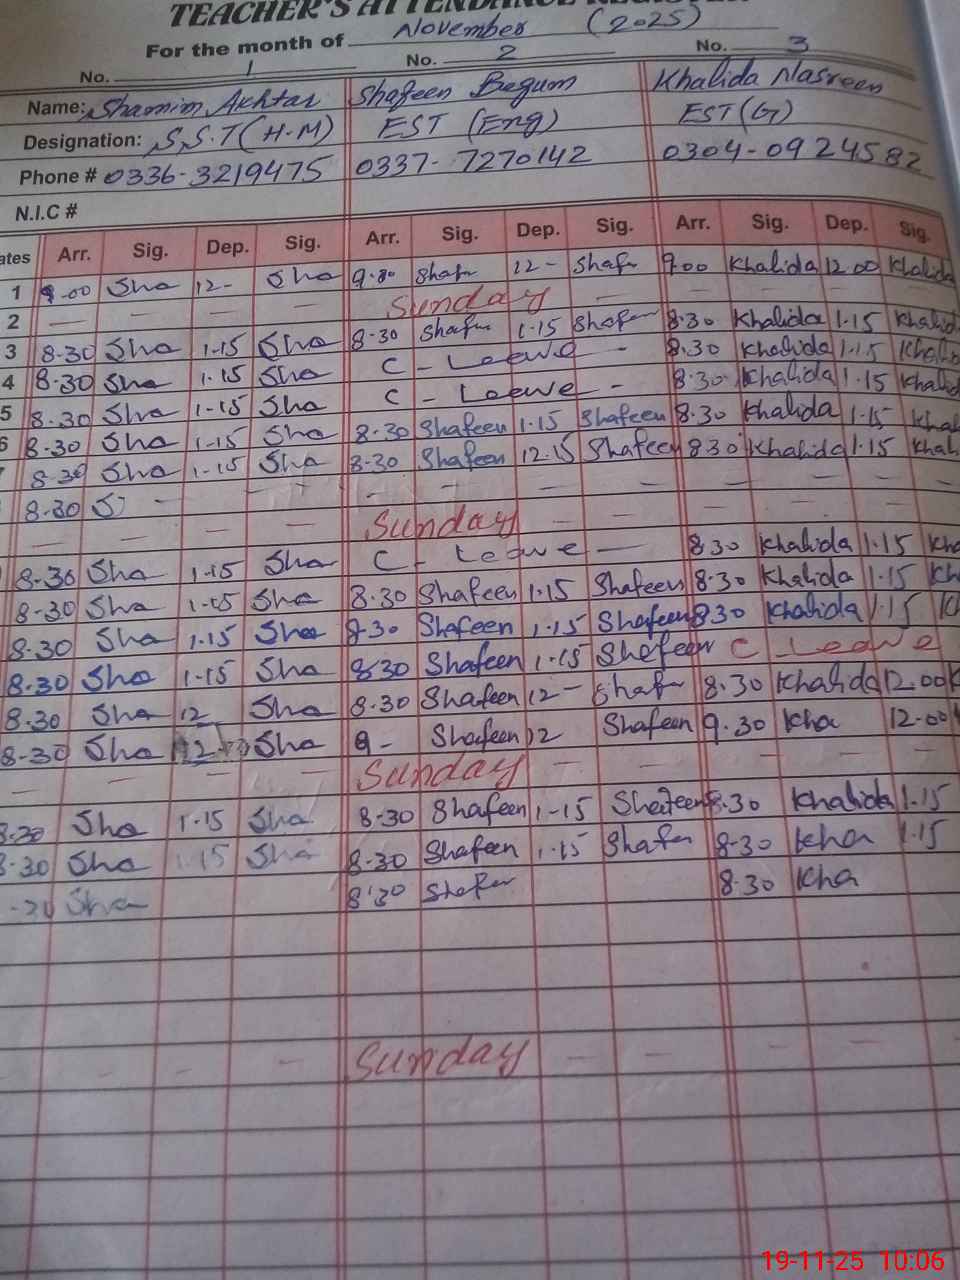 TEACHER'S ATTENDANCE REGISTER
For the month of November (2025)
No. 1 No. 2 No. 3
Name: Shamim Akhtar Shafeen Begum Khalida Nasreen
Designation: S.S.T (H.M) EST (Eng) EST (G)
Phone # 0336-3219475 0337-7270142 0304-0924582
N.I.C #
ates Arr. Sig. Dep. Sig. Arr. Sig. Dep. Sig. Arr. Sig. Dep. Sig.
1 9-00 Sha 12- Sha 9.30 Shafn 12- Shafn 9.00 Khalida 12.00 Khalida
2 — — — — Sunday — — — — —
3 8-30 Sha 1-15 Sha 8-30 Shafn 1.15 Shafn 8.30 Khalida 1.15 Khalid
4 8-30 Sha 1.15 Sha C - Leewe - 8.30 Khalida 1.15 Khalid
5 8.30 Sha 1-15 Sha C - Leewe - 8.30 Khalida 1.15 Khalid
6 8-30 Sha 1-15 Sha 8-30 Shafeen 1.15 Shafeen 8.30 Khalida 1.15 Kha
8-30 Sha 1-15 Sha 8-30 Shafeen 12.15 Shafeen 8.30 Khalida 1.15 Khal
8-30 S — — — — — — — — — —
— — — — Sunday — — — —
8-30 Sha 1.15 Sha C - Leave — 8.30 Khalida 1.15 Kha
8-30 Sha 1-15 Sha 8.30 Shafeen 1.15 Shafeen 8.30 Khalida 1.15 Kh
8.30 Sha 1.15 Sha 8-30 Shafeen 1.15 Shafeen 8.30 Khalida 1.15 K
8-30 Sha 1-15 Sha 8-30 Shafeen 1-15 Shefeen C - Leave
8.30 Sha 12 Sha 8-30 Shafeen 12- Shafn 8.30 Khalida 12.00 K
8-30 Sha 12 Sha 9- Shafeen 12 Shafeen 9.30 Kha 12.00
— — — — Sunday — — — — —
8-30 Sha 1.15 Sha 8-30 Shafeen 1-15 Shafeen 8.30 Khalida 1.15
8-30 Sha 1.15 Sha 8-30 Shafeen 1.15 Shafn 8-30 Kha 1.15
Sha 8.30 Shefn 8.30 Kha
— — — — Sunday — — — — —
19-11-25 10:06